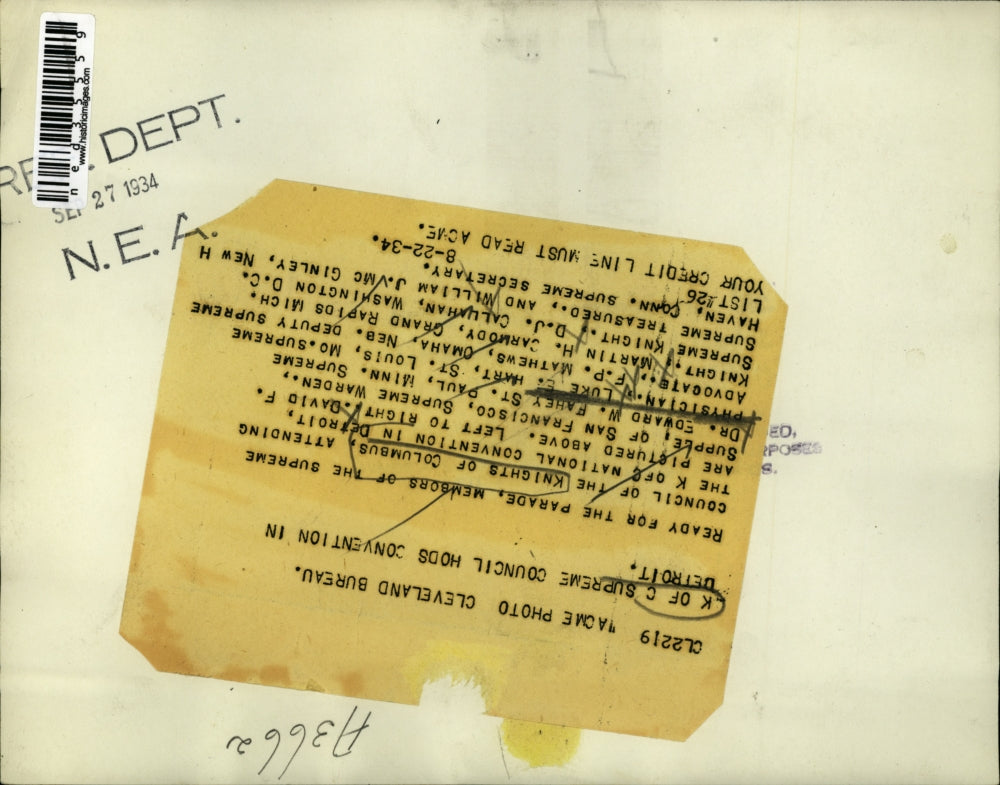 ned35559
www.historicimages.com
DEPT.
SEP 27 1934
N.E.A.
CL2219 "ACME PHOTO CLEVELAND BUREAU.
K OF C SUPREME COUNCIL HODS CONVENTION IN
DETROIT.
READY FOR THE PARADE, MEMBORS OF THE SUPREME
COUNCIL OF THE KNIGHTS OF COLUMBUS, ATTENDING
THE K OFC NATIONAL CONVENTION IN DETROIT,
ARE PICTURED ABOVE. LEFT TO RIGHT.DAVID F.
SUPPLE OF SAN FRANCISCO, SUPREME WARDEN,
DR. EDWARD W. FAHEY ST. PAUL, MINN. SUPREME
PHYSICIAN, LUKE E. HART, ST. LOUIS, MO.SUPREME
ADVOCATE, F.P. MATHEWS, OMAHA, NEB. DEPUTY SUPREME
KNIGHT, MARTIN H. CARMODY, GRAND RAPIDS MICH.
SUPREME KNIGHT, D.J. CALLAHAN, WASHINGTON D.C.
SUPREME TREASURED, AND WILLIAM J.MC GINLEY, NEW H
HAVEN, CONN. SUPREME SECRETARY.
LIST#26 8-22-34.
YOUR CREDIT LINE MUST READ ACME.
A3662